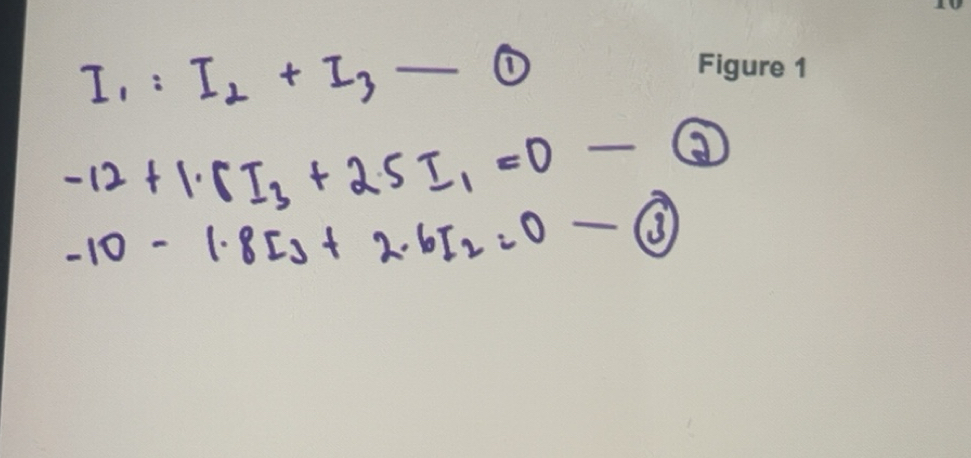 I₁ = I₂ + I₃ — ①
Figure 1
-12 + 1.8I₃ + 2.5I₁ = 0 — ②
-10 - 1.8I₃ + 2.6I₂ = 0 — ③